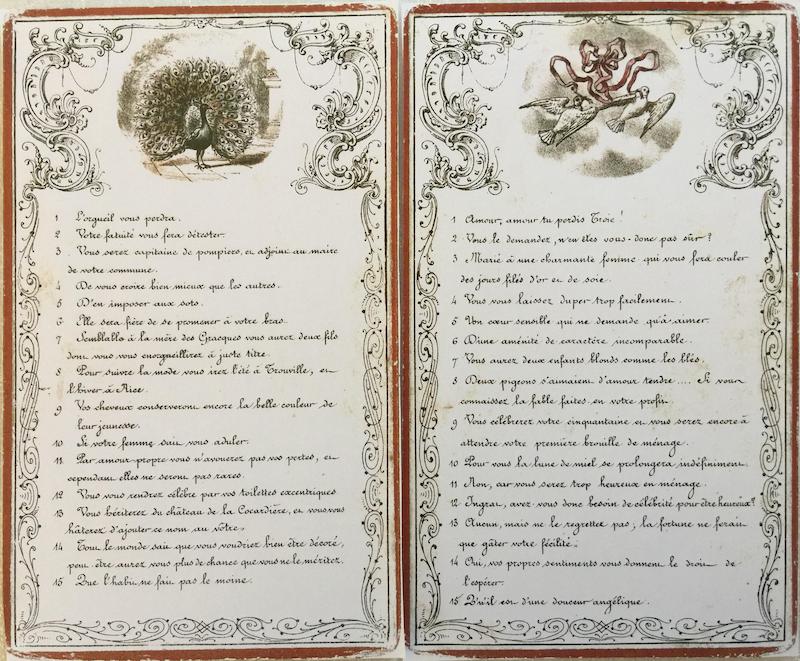 1 L'orgueil vous perdra.
2 Votre fatuité vous fera détester.
3 Vous serez capitaine de pompiers, et adjoint au maire
de votre commune.
4 De vous croire bien mieux que les autres.
5 D'en imposer aux sots.
6 Elle sera fière de se promener à votre bras.
7 Semblable à la mère des Gracques vous aurez deux fils
dont vous vous enorgueillirez à juste titre.
8 Pour suivre la mode vous irez l'été à Trouville, et
l'hiver à Nice.
9 Vos cheveux conserveront encore la belle couleur de
leur jeunesse.
10 Si votre femme sait vous aduler.
11 Par amour-propre vous n'avouerez pas vos pertes, et
cependant elles ne seront pas rares.
12 Vous vous rendrez célèbre par vos toilettes excentriques.
13 Vous hériterez du château de la Cocardière, et vous vous
hâterez d'ajouter ce nom au vôtre.
14 Tout le monde sait que vous voudriez bien être décoré,
peut être aurez vous plus de chance que vous ne le méritez.
15 Que l'habit ne fait pas le moine.
1 Amour, amour tu perdis Troie !
2 Vous le demandez, n'en êtes vous-donc pas sûr ?
3 Marié à une charmante femme qui vous fera couler
des jours filés d'or et de soie.
4 Vous vous laissez duper trop facilement.
5 Un cœur sensible qui ne demande qu'à aimer.
6 D'une aménité de caractère incomparable.
7 Vous aurez deux enfants blonds comme les blés.
8 Deux pigeons s'aimaient d'amour tendre .... Si vous
connaissez la fable faites en votre profit.
9 Vous célébrerez votre cinquantaine et vous serez encore à
attendre votre première brouille de ménage.
10 Pour vous la lune de miel se prolongera indéfiniment.
11 Non, car vous serez trop heureux en ménage.
12 Ingrat, avez vous donc besoin de célébrité pour être heureux ?
13 Aucun, mais ne le regrettez pas ; la fortune ne ferait
que gâter votre félicité.
14 Oui, vos propres sentiments vous donnent le droit de
l'espérer.
15 Qu'il est d'une douceur angélique.